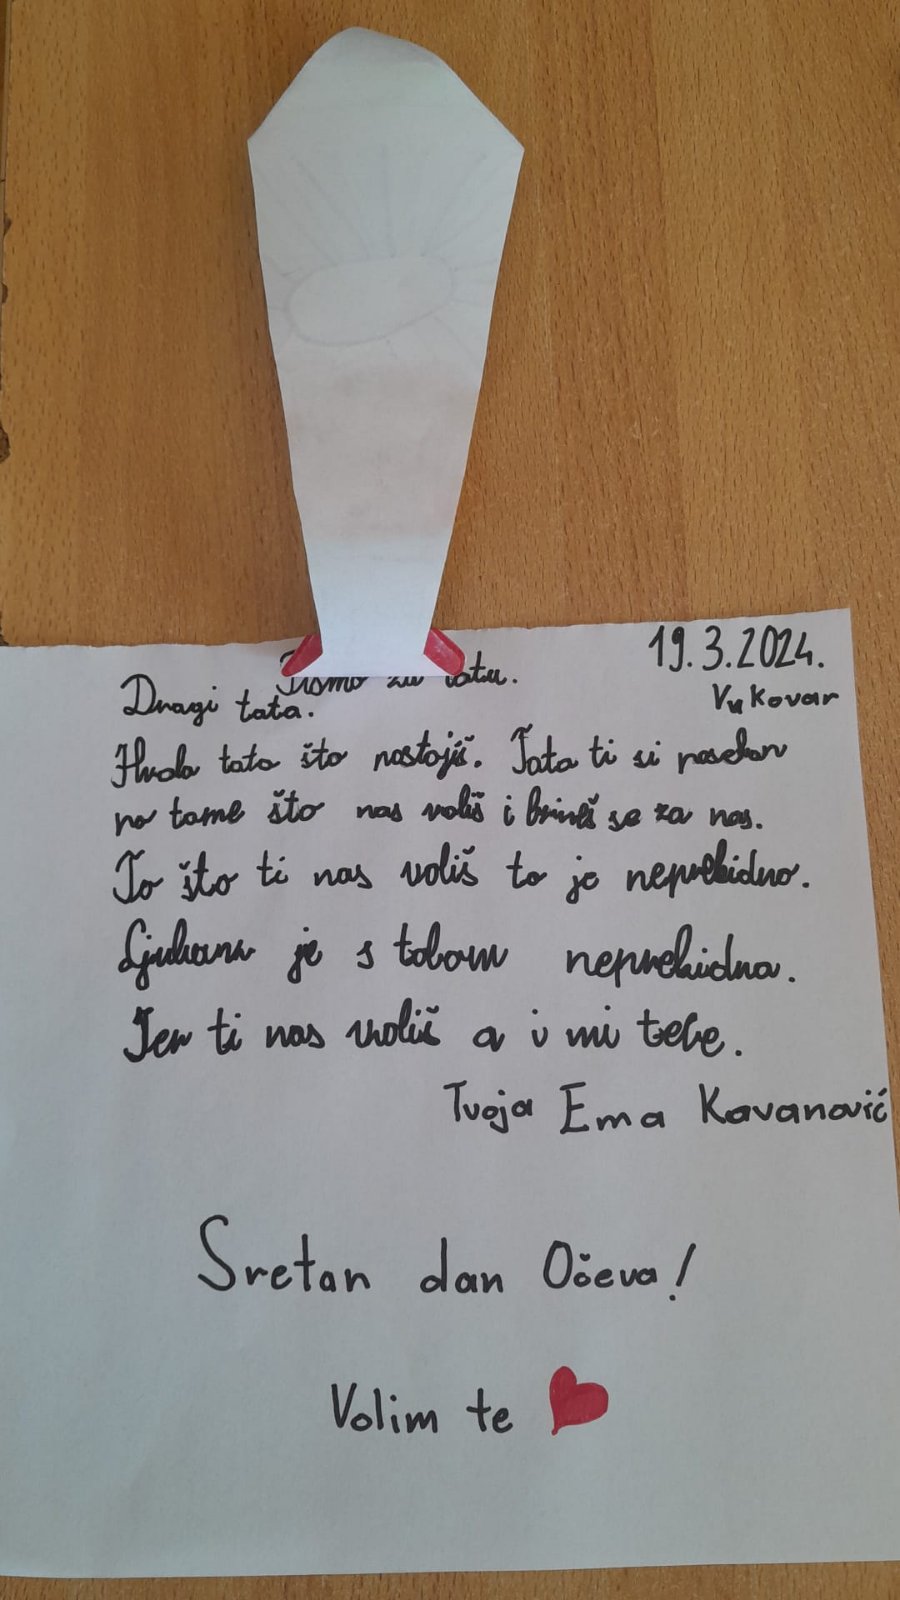 19.3.2024.
Pismo za tatu.
Vukovar
Dragi tata.
Hvala tata što postojiš. Tata ti si poseban
po tome što nas voliš i brineš se za nas.
To što ti nas voliš to je neprekidno.
Ljubav je s tobom neprekidna.
Jer ti nas voliš a i mi tebe.
Tvoja Ema Kavanović
Sretan dan Očeva!
Volim te